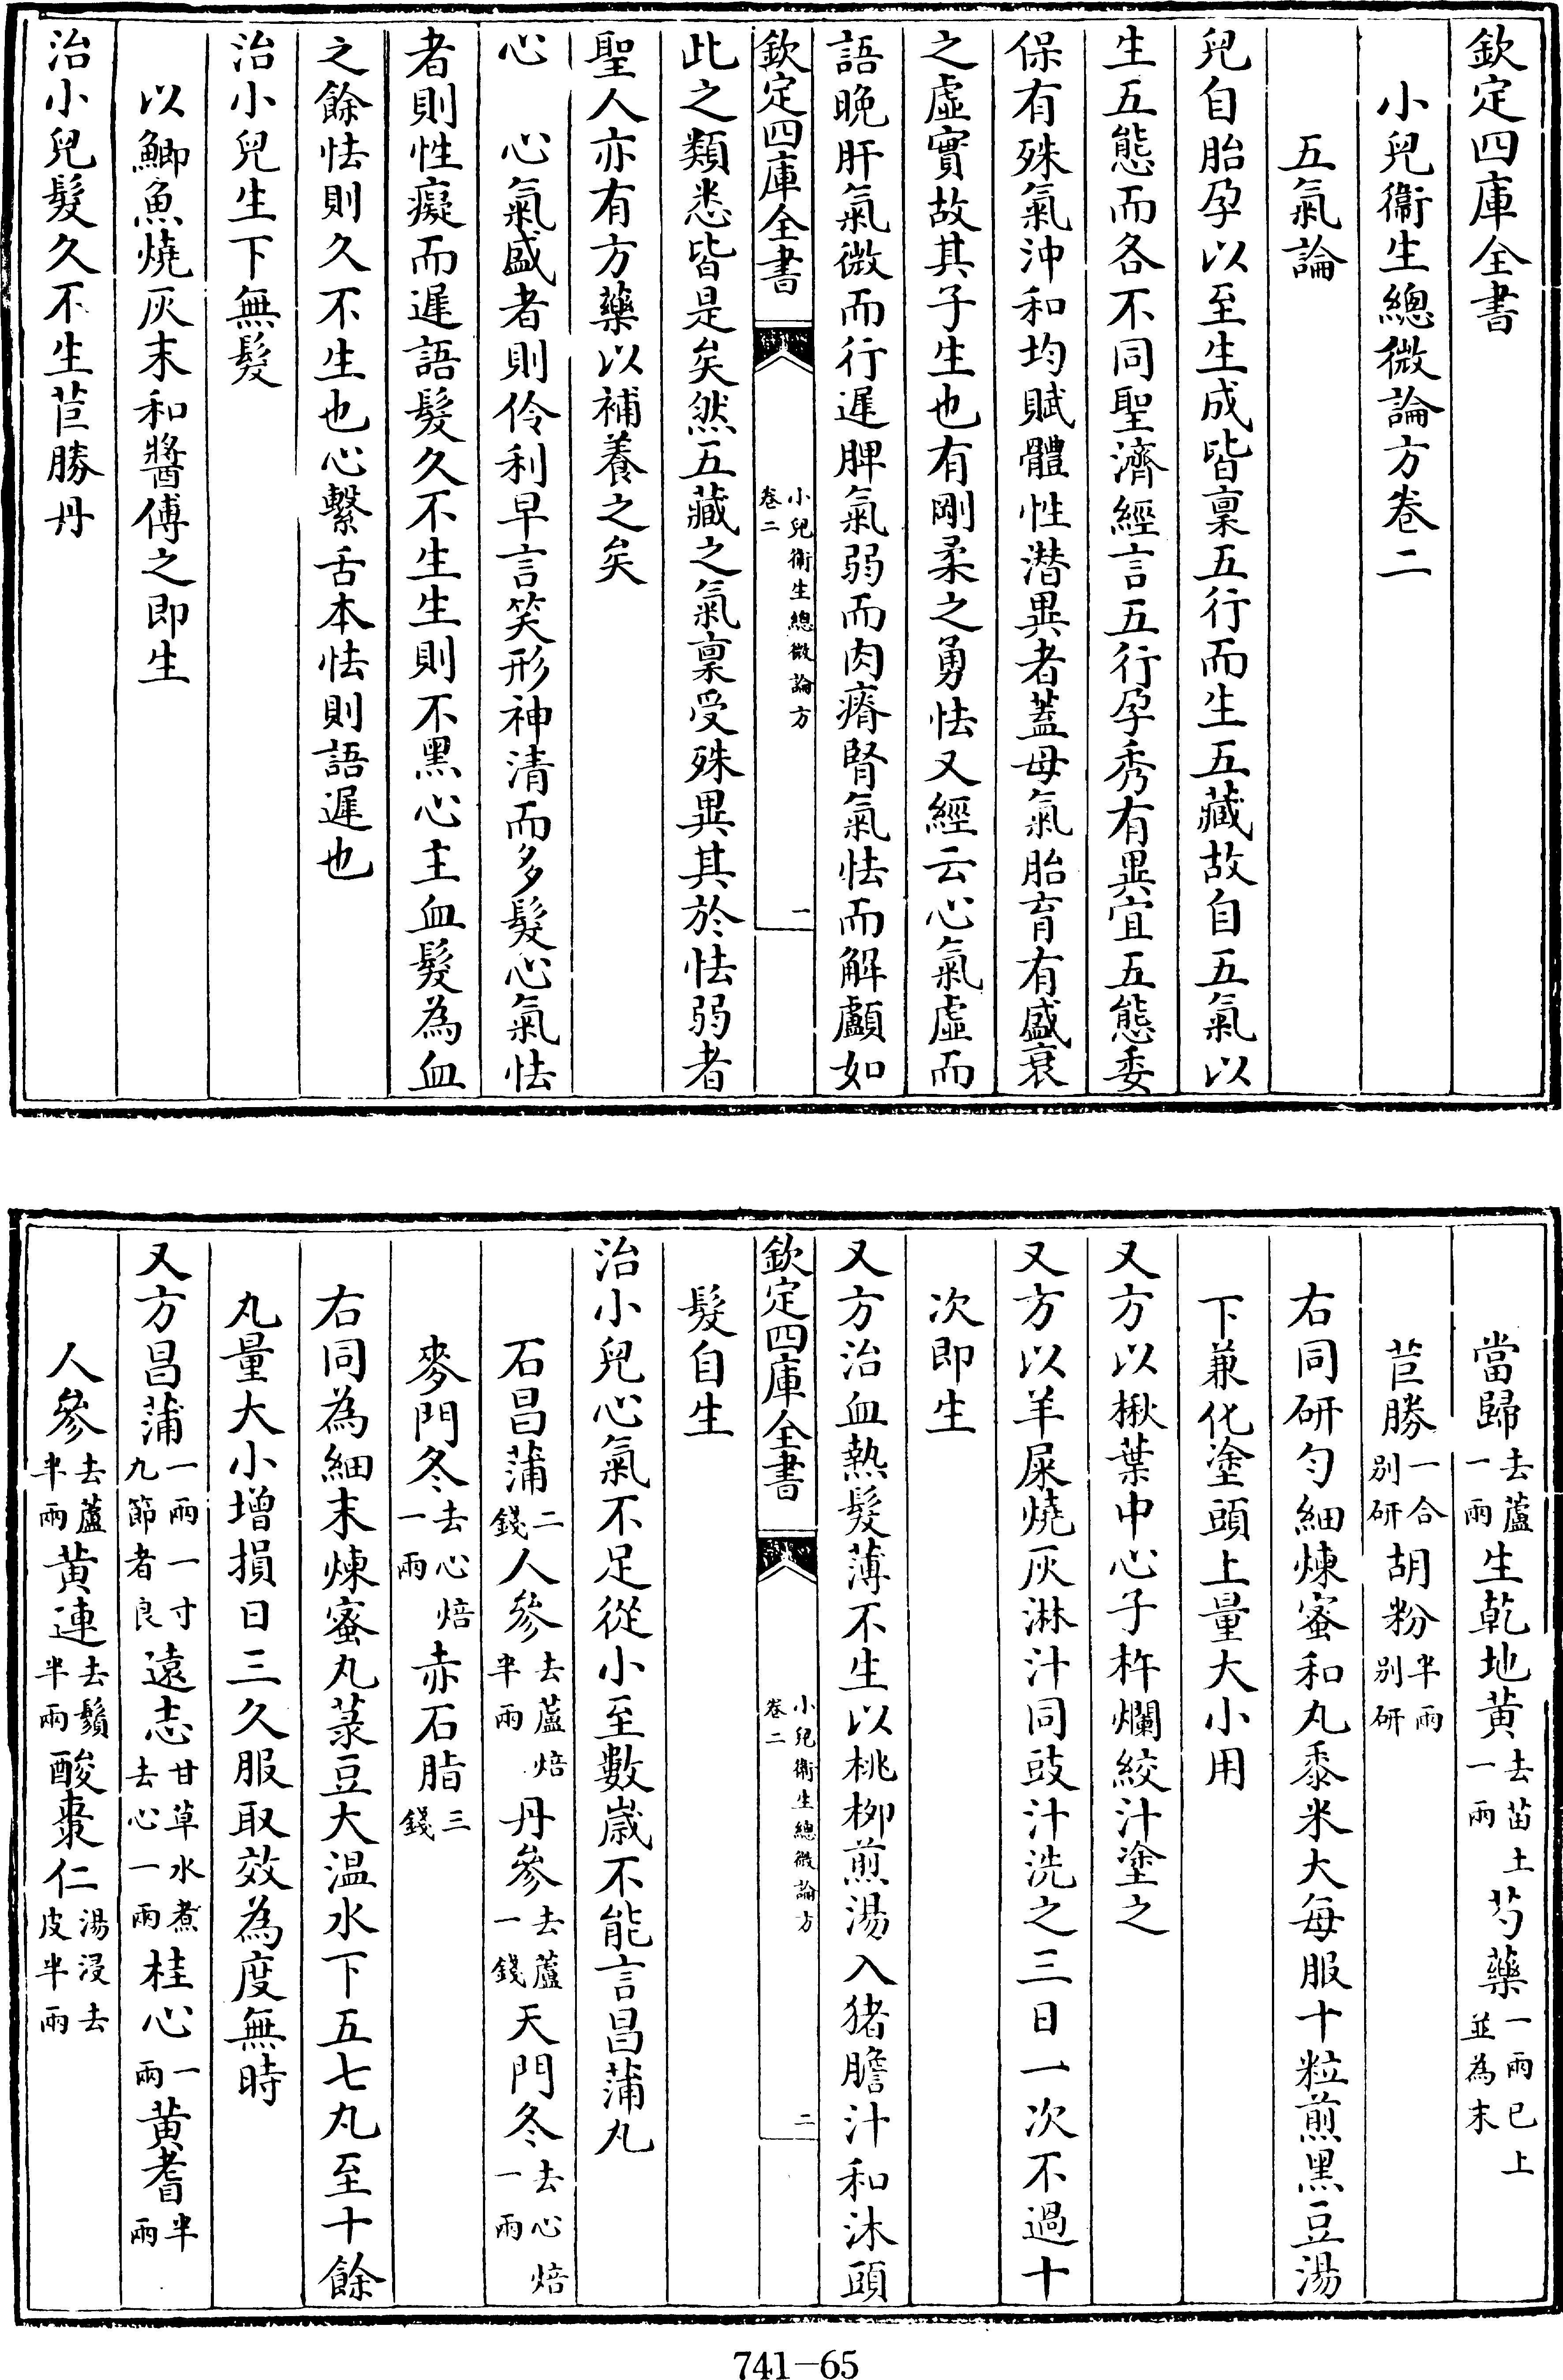 欽定四庫全書
小兒衞生總微論方卷二
五氣論
兒自胎孕以至生成皆稟五行而生五藏故自五氣以
生五態而各不同聖濟經言五行孕秀有異宜五態委
保有殊氣沖和均賦體性潛異者蓋母氣胎育有盛衰
之虛實故其子生也有剛柔之勇怯又經云心氣虛而
語晚肝氣微而行遲脾氣弱而肉瘠腎氣怯而解顱如
欽定四庫全書
小兒衞生總微論方
卷二
一
此之類悉皆是矣然五藏之氣稟受殊異其於怯弱者
聖人亦有方藥以補養之矣
心　心氣盛者則伶利早言笑形神清而多髮心氣怯
者則性癡而遲語髮久不生生則不黑心主血髮為血
之餘怯則久不生也心繫舌本怯則語遲也
治小兒生下無髮
以鯽魚燒灰末和醬傅之即生
治小兒髮久不生苣勝丹
當歸去蘆一兩生乾地黃去苗土一兩芍藥一兩已上並為末
苣勝一合別研胡粉半兩別研
右同研勻細煉蜜和丸黍米大每服十粒煎黑豆湯
下兼化塗頭上量大小用
又方以楸葉中心子杵爛絞汁塗之
又方以羊屎燒灰淋汁同豉汁洗之三日一次不過十
次即生
又方治血熱髮薄不生以桃柳煎湯入猪膽汁和沐頭
欽定四庫全書
小兒衞生總微論方
卷二
二
髮自生
治小兒心氣不足從小至數嵗不能言昌蒲丸
石昌蒲二錢人參去蘆焙半兩丹參去蘆一錢天門冬去心焙一兩
麥門冬去心焙一兩赤石脂三錢
右同為細末煉蜜丸菉豆大温水下五七丸至十餘
丸量大小增損日三久服取效為度無時
又方昌蒲一兩一寸九節者良遠志甘草水煮去心一兩桂心一兩黃耆半兩
人參去蘆半兩黃連去鬚半兩酸棗仁湯浸去皮半兩
741-65